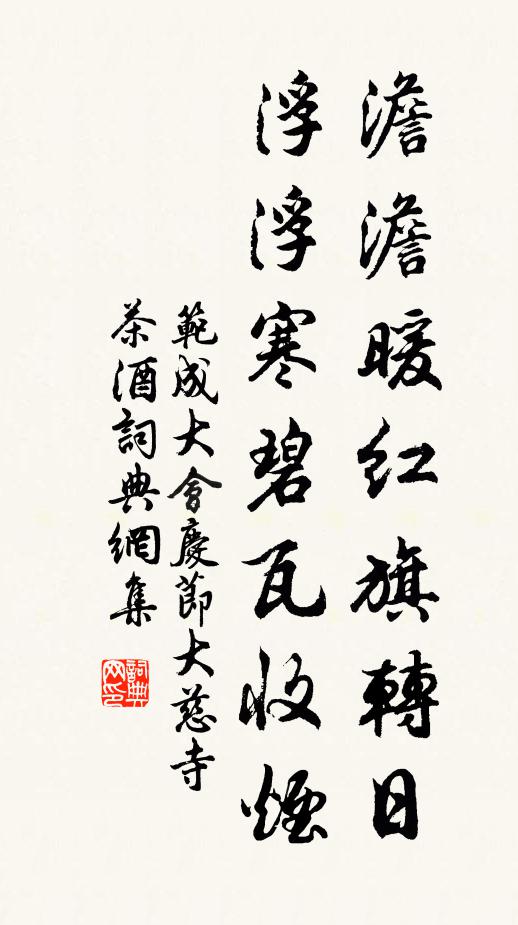 澹澹暖红旗轉日
浮浮寒碧瓦收煙
範成大會慶節大慈寺
茶酒詞典網集
詞典网印